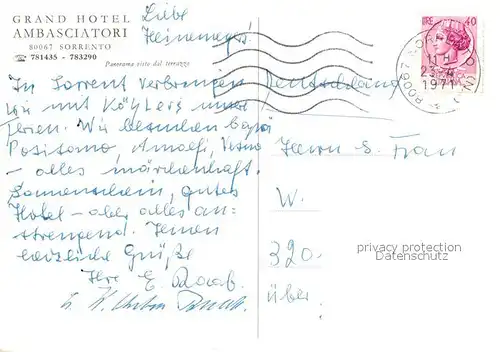 GRAND HOTEL
AMBASCIATORI
80067 SORRENTO
☎ 781435 - 783290
Panorama visto dal terrazzo
Liebe
Heinemeyers!
In Sorrent verbringen
wir mit Köhlers unsere
Ferien. Wir besuchen
Positano, Amalfi,
– alles märchenhaft.
Sonnenschein, gutes
Hotel – aber alles an=
strengend. Ihnen
herzliche Grüße
Ihre E. Raab.
LIRE 40
80067 SORRENTO
11 H
23.4
1971
(NA)
Deutschland
Herrn & Frau
W.
320
über:
privacy protection
Datenschutz